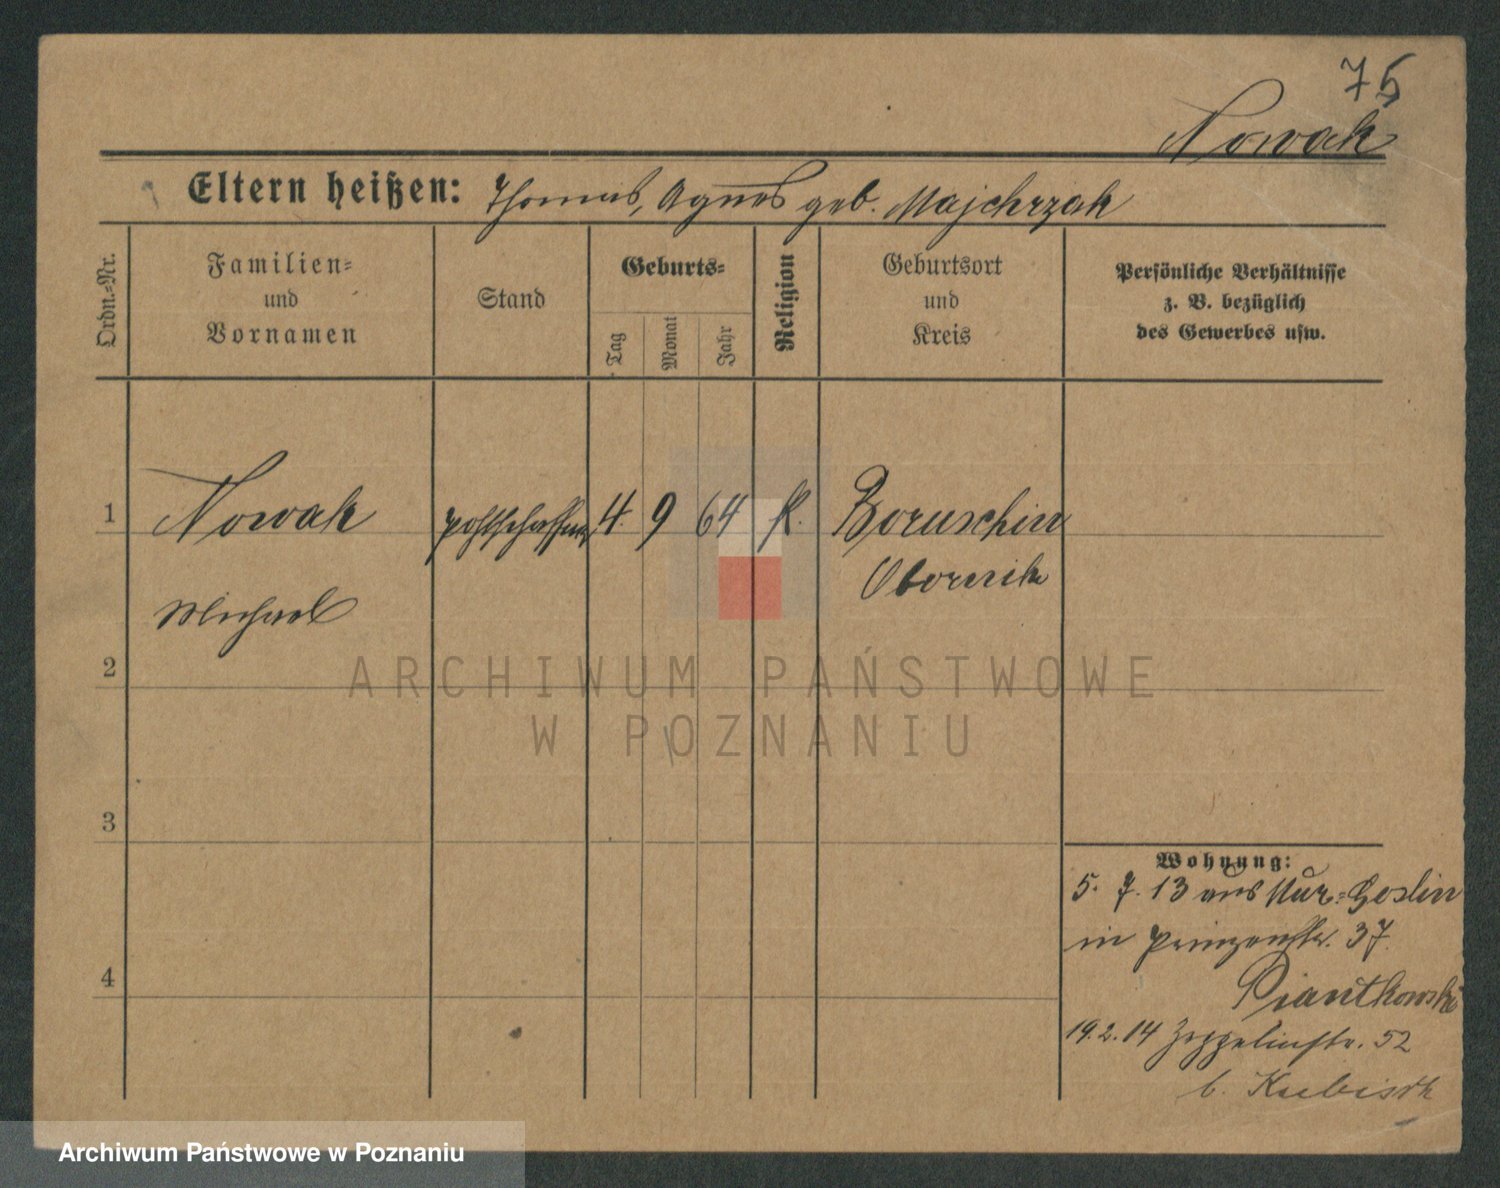 75
Nowak
Eltern heißen: Thomas, Agnes geb. Majchrzak
Ordn.=Nr.
Familien=
und
Vornamen
Stand
Geburts=
Tag
Monat
Jahr
Religion
Geburtsort
und
Kreis
Persönliche Verhältnisse
z. B. bezüglich
des Gewerbes usw.
1
Nowak
Postschaffner
4.
9
64
k.
Boruschin
Obornik
Michael
2
ARCHIWUM PAŃSTWOWE
W POZNANIU
3
Wohnung:
5. 7. 13 aus Mur=Goslin
in Prinzenstr. 37.
Piantkowski
4
19.2.14 Zeppelinstr. 52
b. Kubisch
Archiwum Państwowe w Poznaniu